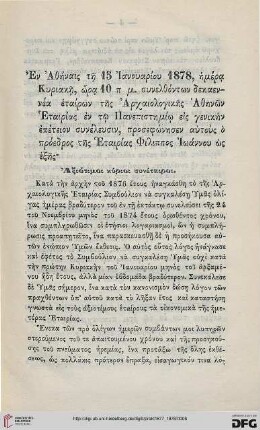 — 4 —
Ἐν Ἀθήναις τῇ 15 Ἰανουαρίου 1878, ἡμέρᾳ
Κυριακῇ, ὥρᾳ 10 π μ. συνελθόντων δεκαεν-
νέα ἑταίρων τῆς Ἀρχαιολογικῆς Ἀθηνῶν
Ἑταιρίας ἐν τῷ Πανεπιστημίῳ εἰς γενικὴν
ἐπέτειον συνέλευσιν, προσεφώνησεν αὐτοὺς ὁ
πρόεδρος τῆς Ἑταιρίας Φίλιππος Ἰωάννου ὡς
ἑξῆς·
Ἀξιότιμοι κύριοι συνέταιροι.
Κατὰ τὴν ἀρχὴν τοῦ 1876 ἔτους ἠναγκάσθη τὸ τῆς Ἀρ-
χαιολογικῆς Ἑταιρίας Συμβούλιον νὰ συγκαλέσῃ Ὑμᾶς ὀλί-
γας ἡμέρας βραδύτερον τοῦ ἐν τῇ ἐκτάκτῳ συνελεύσει τῆς 24
τοῦ Νοεμβρίου μηνὸς τοῦ 1874 ἔτους ὁρισθέντος χρόνου,
ἵνα συμπληρωθῶσιν οἱ ἐτήσιοι λογαριασμοί, ὧν ἡ συμπλή-
ρωσις προαπῃτεῖτο, ἵνα παρασκευασθῇ δὲ ἡ προσήκουσα αὐ-
τῶν ἐνώπιον Ὑμῶν ἔκθεσις. Ὁ αὐτὸς οὗτος λόγος ἠνάγκασε
καὶ ἐφέτος τὸ Συμβούλιον νὰ συγκαλέσῃ Ὑμᾶς οὐχὶ κατὰ
τὴν πρώτην Κυριακὴν τοῦ Ἰανουαρίου μηνὸς τοῦ ἀρξαμέ-
νου ἤδη ἔτους, ἀλλὰ μίαν ἑβδομάδα βραδύτερον. Συνεκάλεσε
δὲ Ὑμᾶς σήμερον, ἵνα κατὰ τὸν κανονισμὸν δώσῃ λόγον τῶν
πραχθέντων ὑπ' αὐτοῦ κατὰ τὸ λῆξαν ἔτος καὶ καταστήσῃ
γνωστὰ εἰς τοὺς ἀξιοτίμους ἑταίρους τὰ οἰκονομικὰ τῆς ἡμε-
τέρας Ἑταιρίας.
Ἕνεκα τῶν πρὸ ὀλίγων ἡμερῶν συμβάντων μοι λυπηρῶν
στερούμενος τοῦ τε ἀπαιτουμένου χρόνου καὶ τῆς προσηκού-
σης τοῦ πνεύματος ἠρεμίας, ἵνα προτάξω τῆς ὅλης ἐκθέ-
σεως, ὡς πολλάκις πρότερον ἔπραξα, εἰσαγωγικόν τινα λό-
UNIVERSITÄTS-
BIBLIOTHEK
HEIDELBERG
DFG